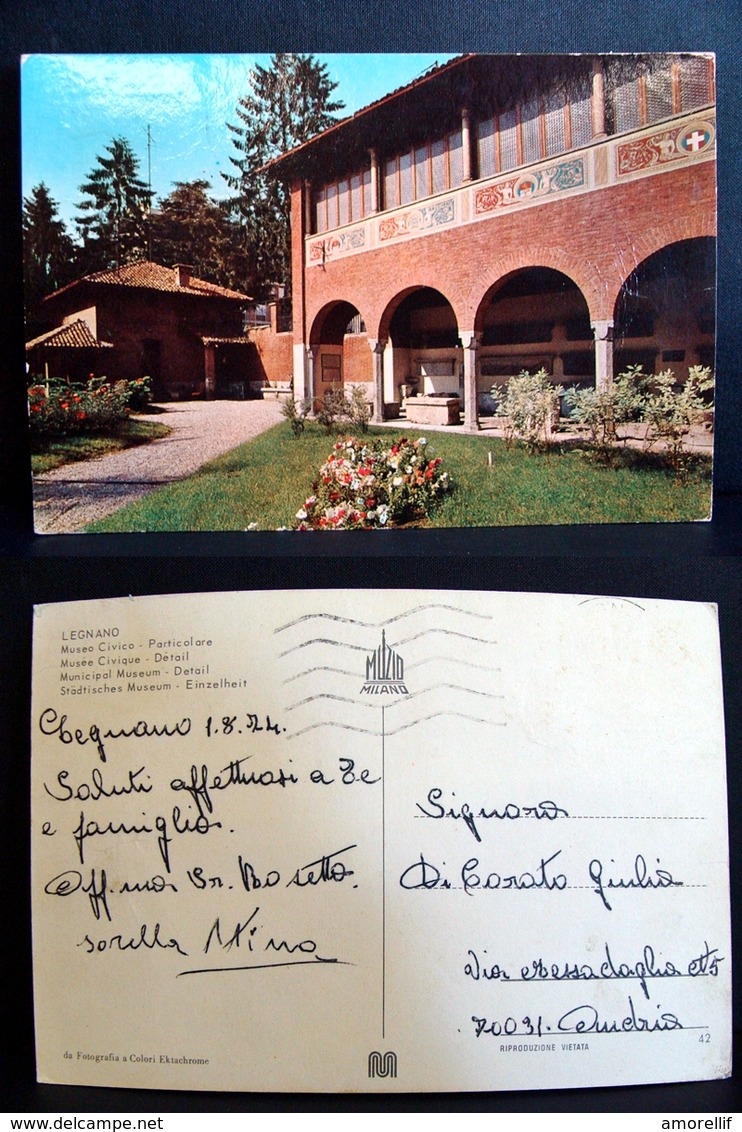 LEGNANO
Museo Civico - Particolare
Musée Civique - Détail
Municipal Museum - Detail
Städtisches Museum - Einzelheit
MUZIO
MILANO
Legnano 1.8.74.
Saluti affettuosi a Te
e famiglia.
Aff.ma Sr. Rosetta.
sorella Nina
Signora
Di Corato Giulia
Via
70031. Andria
da Fotografia a Colori Ektachrome
RIPRODUZIONE VIETATA
42
amorellif